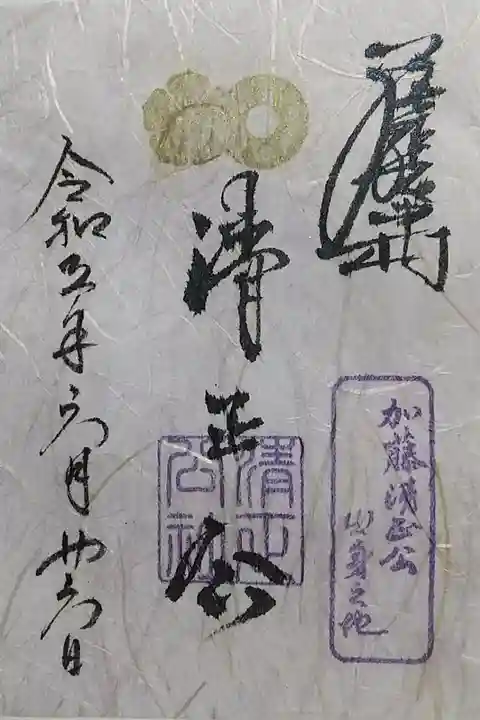 清正公
清正
公社
加藤清正公
出身之地
令和五年六月廿六日